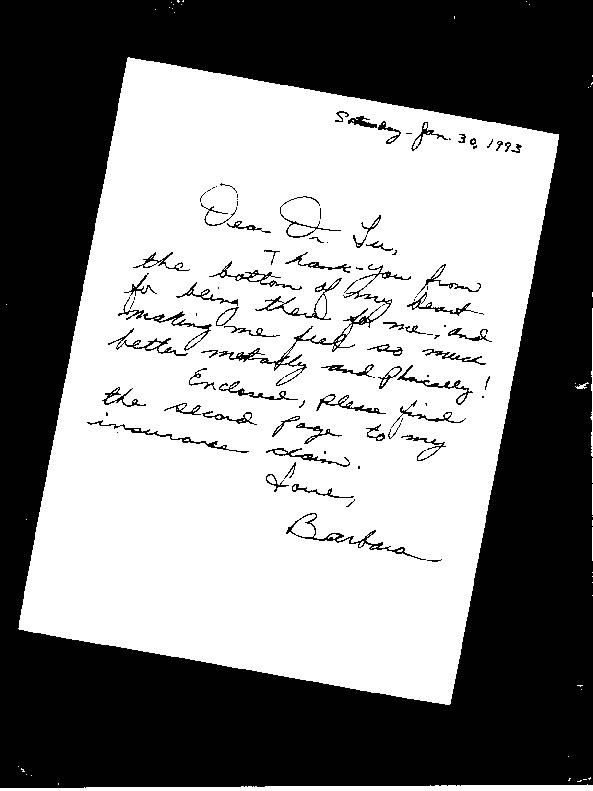 Saturday - Jan. 30, 1993
Dear Dr. Lu,
Thank-You from
the bottom of my heart
for being there for me; and
making me feel so much
better mentally and phisically!
Enclosed, please find
the second page to my
insurance claim.
Love,
Barbara